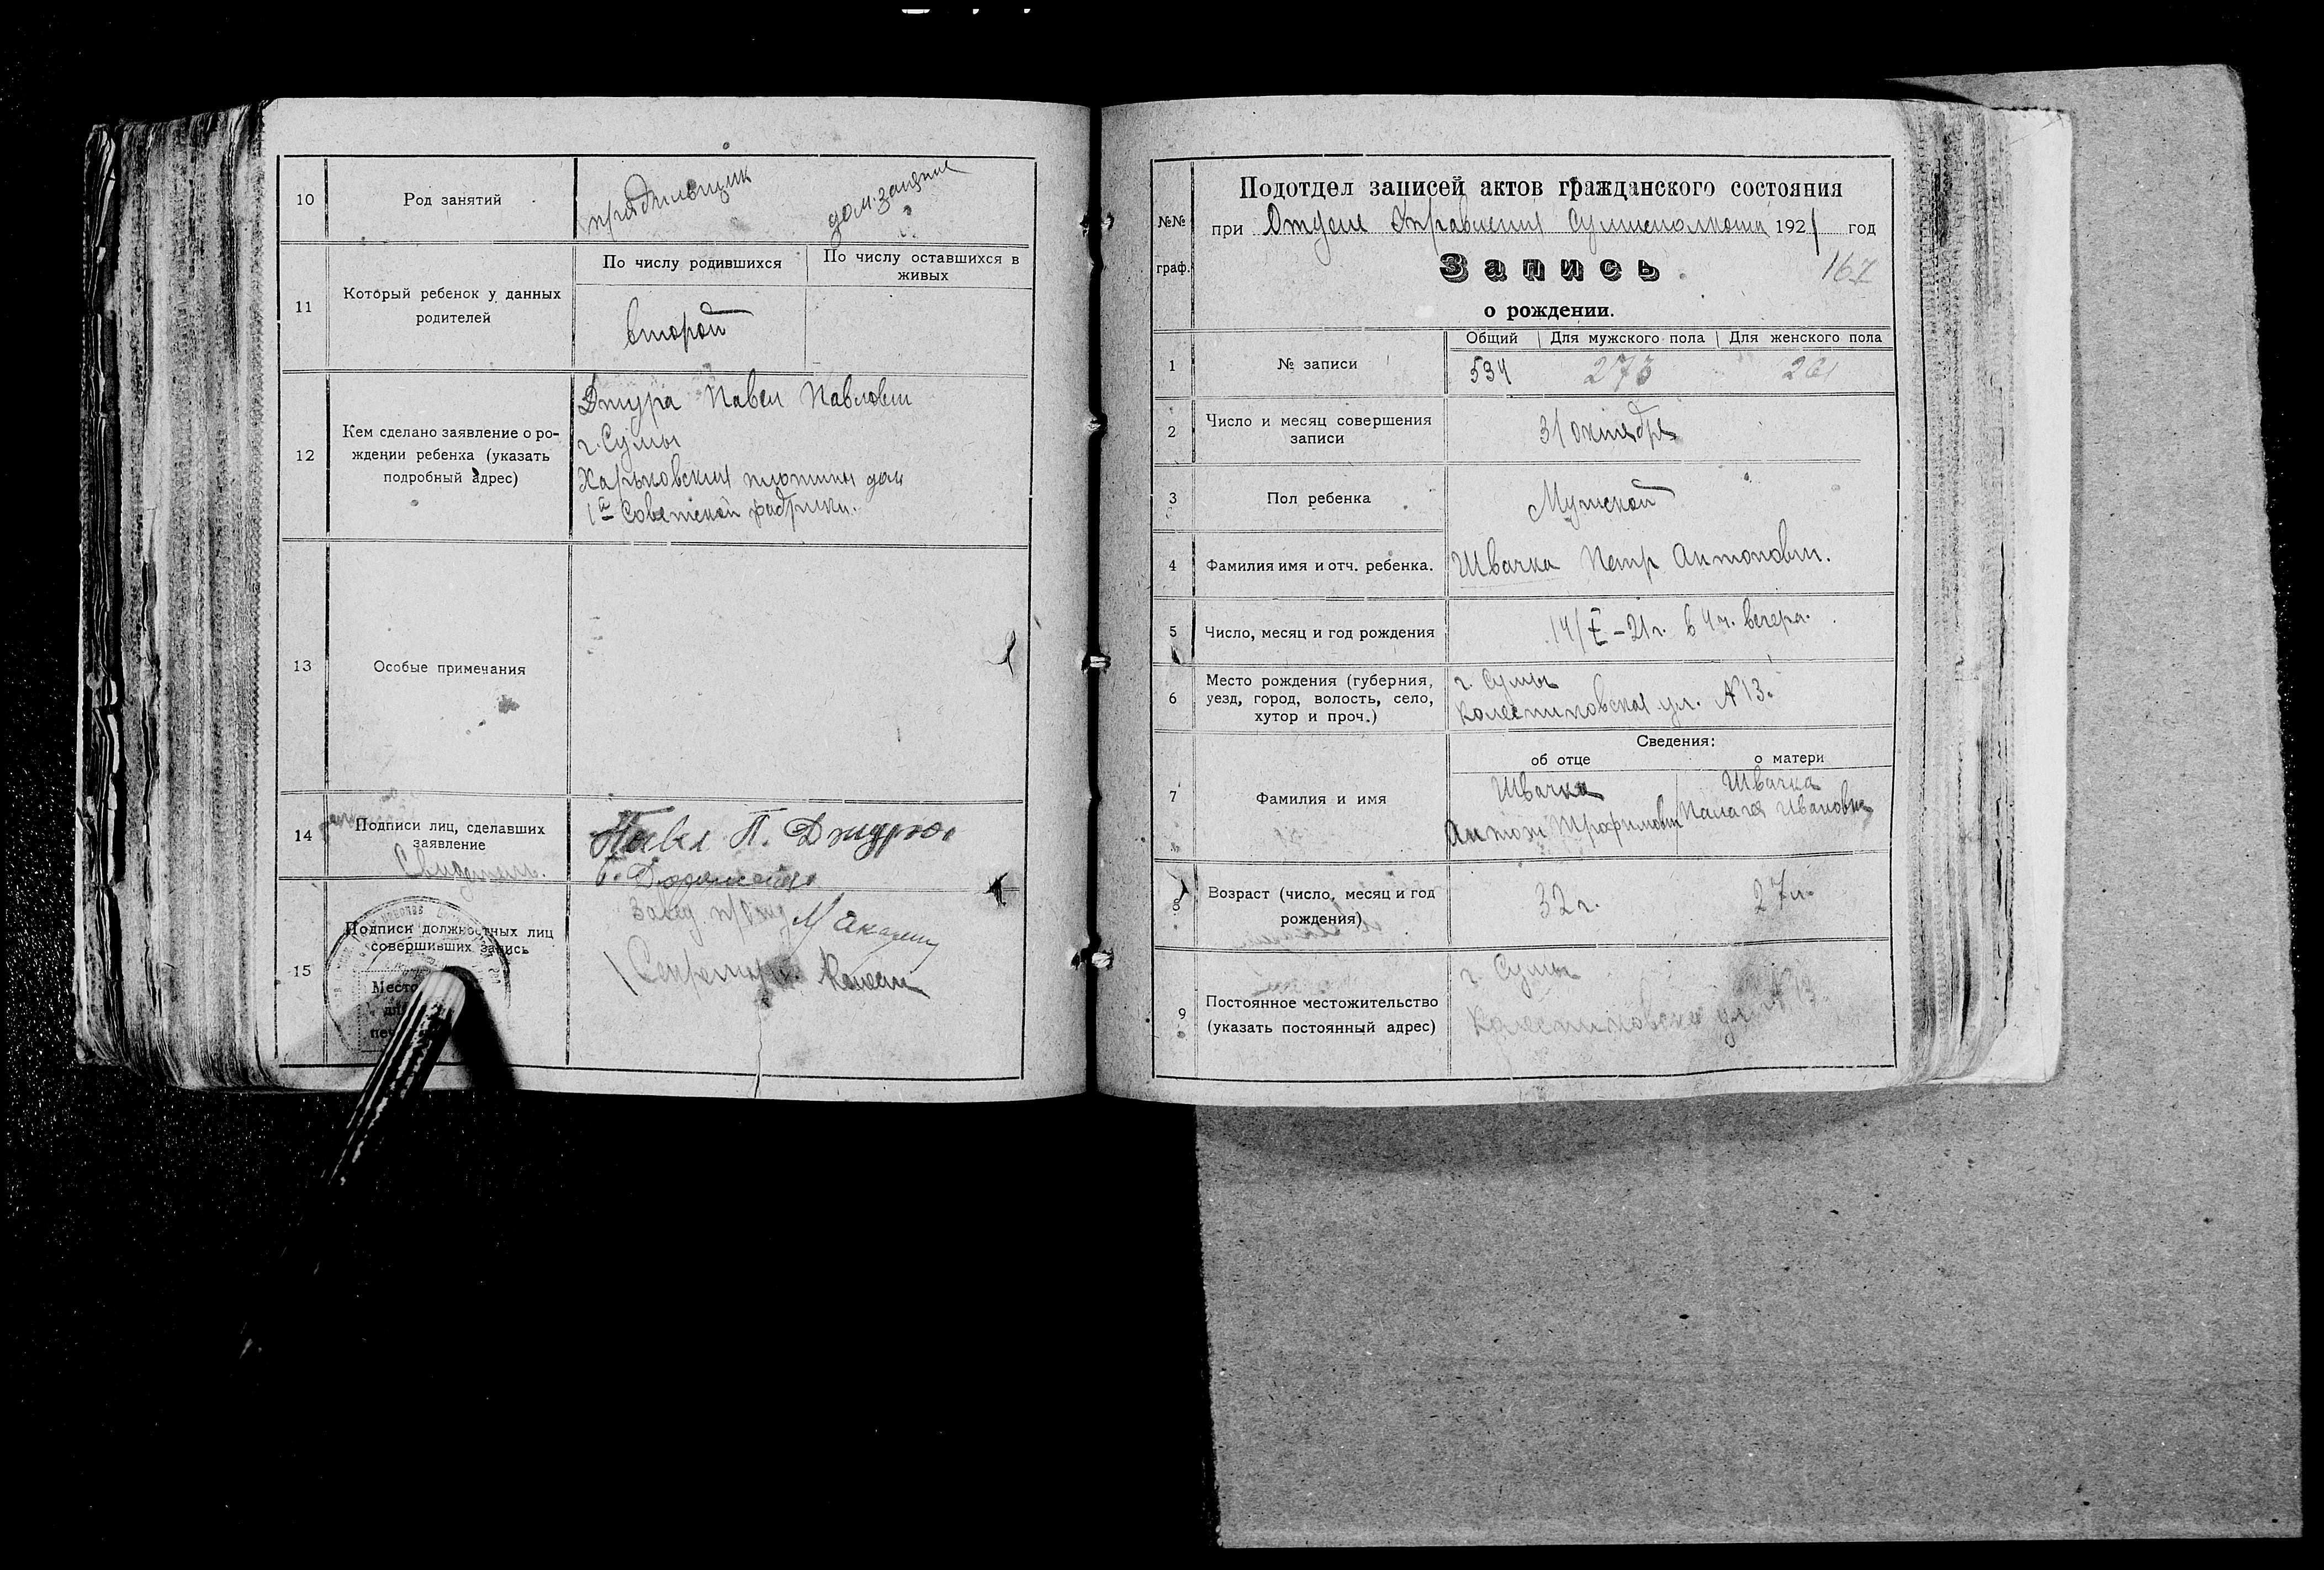 10
Род занятий
прядильщик
дом. занятие
11
Который ребенок у данных
родителей
По числу родившихся
По числу оставшихся в
живых
второй
12
Кем сделано заявление о ро-
ждении ребенка (указать
подробный адрес)
Павел Павлович
г. Сумы
Харьковская дом
1ª Советской фабрики.
13
Особые примечания
14
Подписи лиц, сделавших
заявление
Свидетель.
Павел П.
15
Подписи должностных лиц
совершивших запись
Место
Завед. п/отд
Секретарь
№№
граф.
Подотдел записей актов гражданского состояния
при Отделе Управления Сумисполкома 1921 год
Запись
167
о рождении.
Общий
Для мужского пола
Для женского пола
1
№ записи
534
273
261
2
Число и месяц совершения
записи
31 октября
3
Пол ребенка
Мужской
4
Фамилия имя и отч. ребенка.
Швачка Петр Антонович.
5
Число, месяц и год рождения
14/X – 21 г. в 4 ч. вечера.
6
Место рождения (губерния,
уезд, город, волость, село,
хутор и проч.)
г. Сумы
ул. № 13.
Сведения:
об отце
о матери
7
Фамилия и имя
Швачка
Антон Трофимович
Швачка
Палагея Ивановна
8
Возраст (число, месяц и год
рождения)
32 г.
27 л.
9
Постоянное местожительство
(указать постоянный адрес)
г. Сумы
ул. № 13